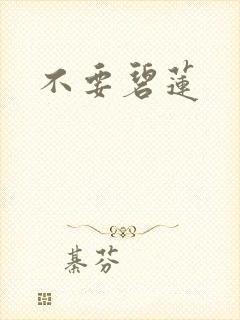 不要碧蓮
綦芬